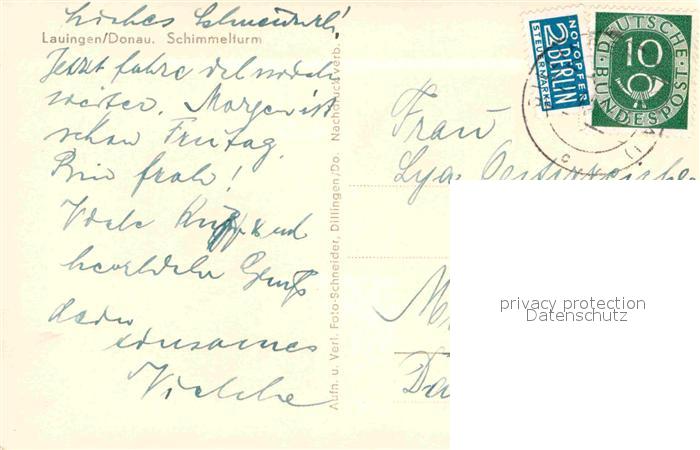 Liebes
Lauingen/Donau. Schimmelturm
Jetzt fahre
weiter. Morgen ist
schon Freitag.
Bin froh!
Viele und
herzliche Grüße
Dein
einsames
Aufn. u. Verl. Foto-Schneider, Dillingen/Do. Nachdruck verb.
NOTOPFER
2 BERLIN
STEUERMARKE
DEUTSCHE
10
BUNDESPOST
Frau
Lya
privacy protection
Datenschutz